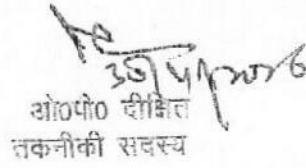 ओ०पी० दीक्षित
तकनीकी सदस्य